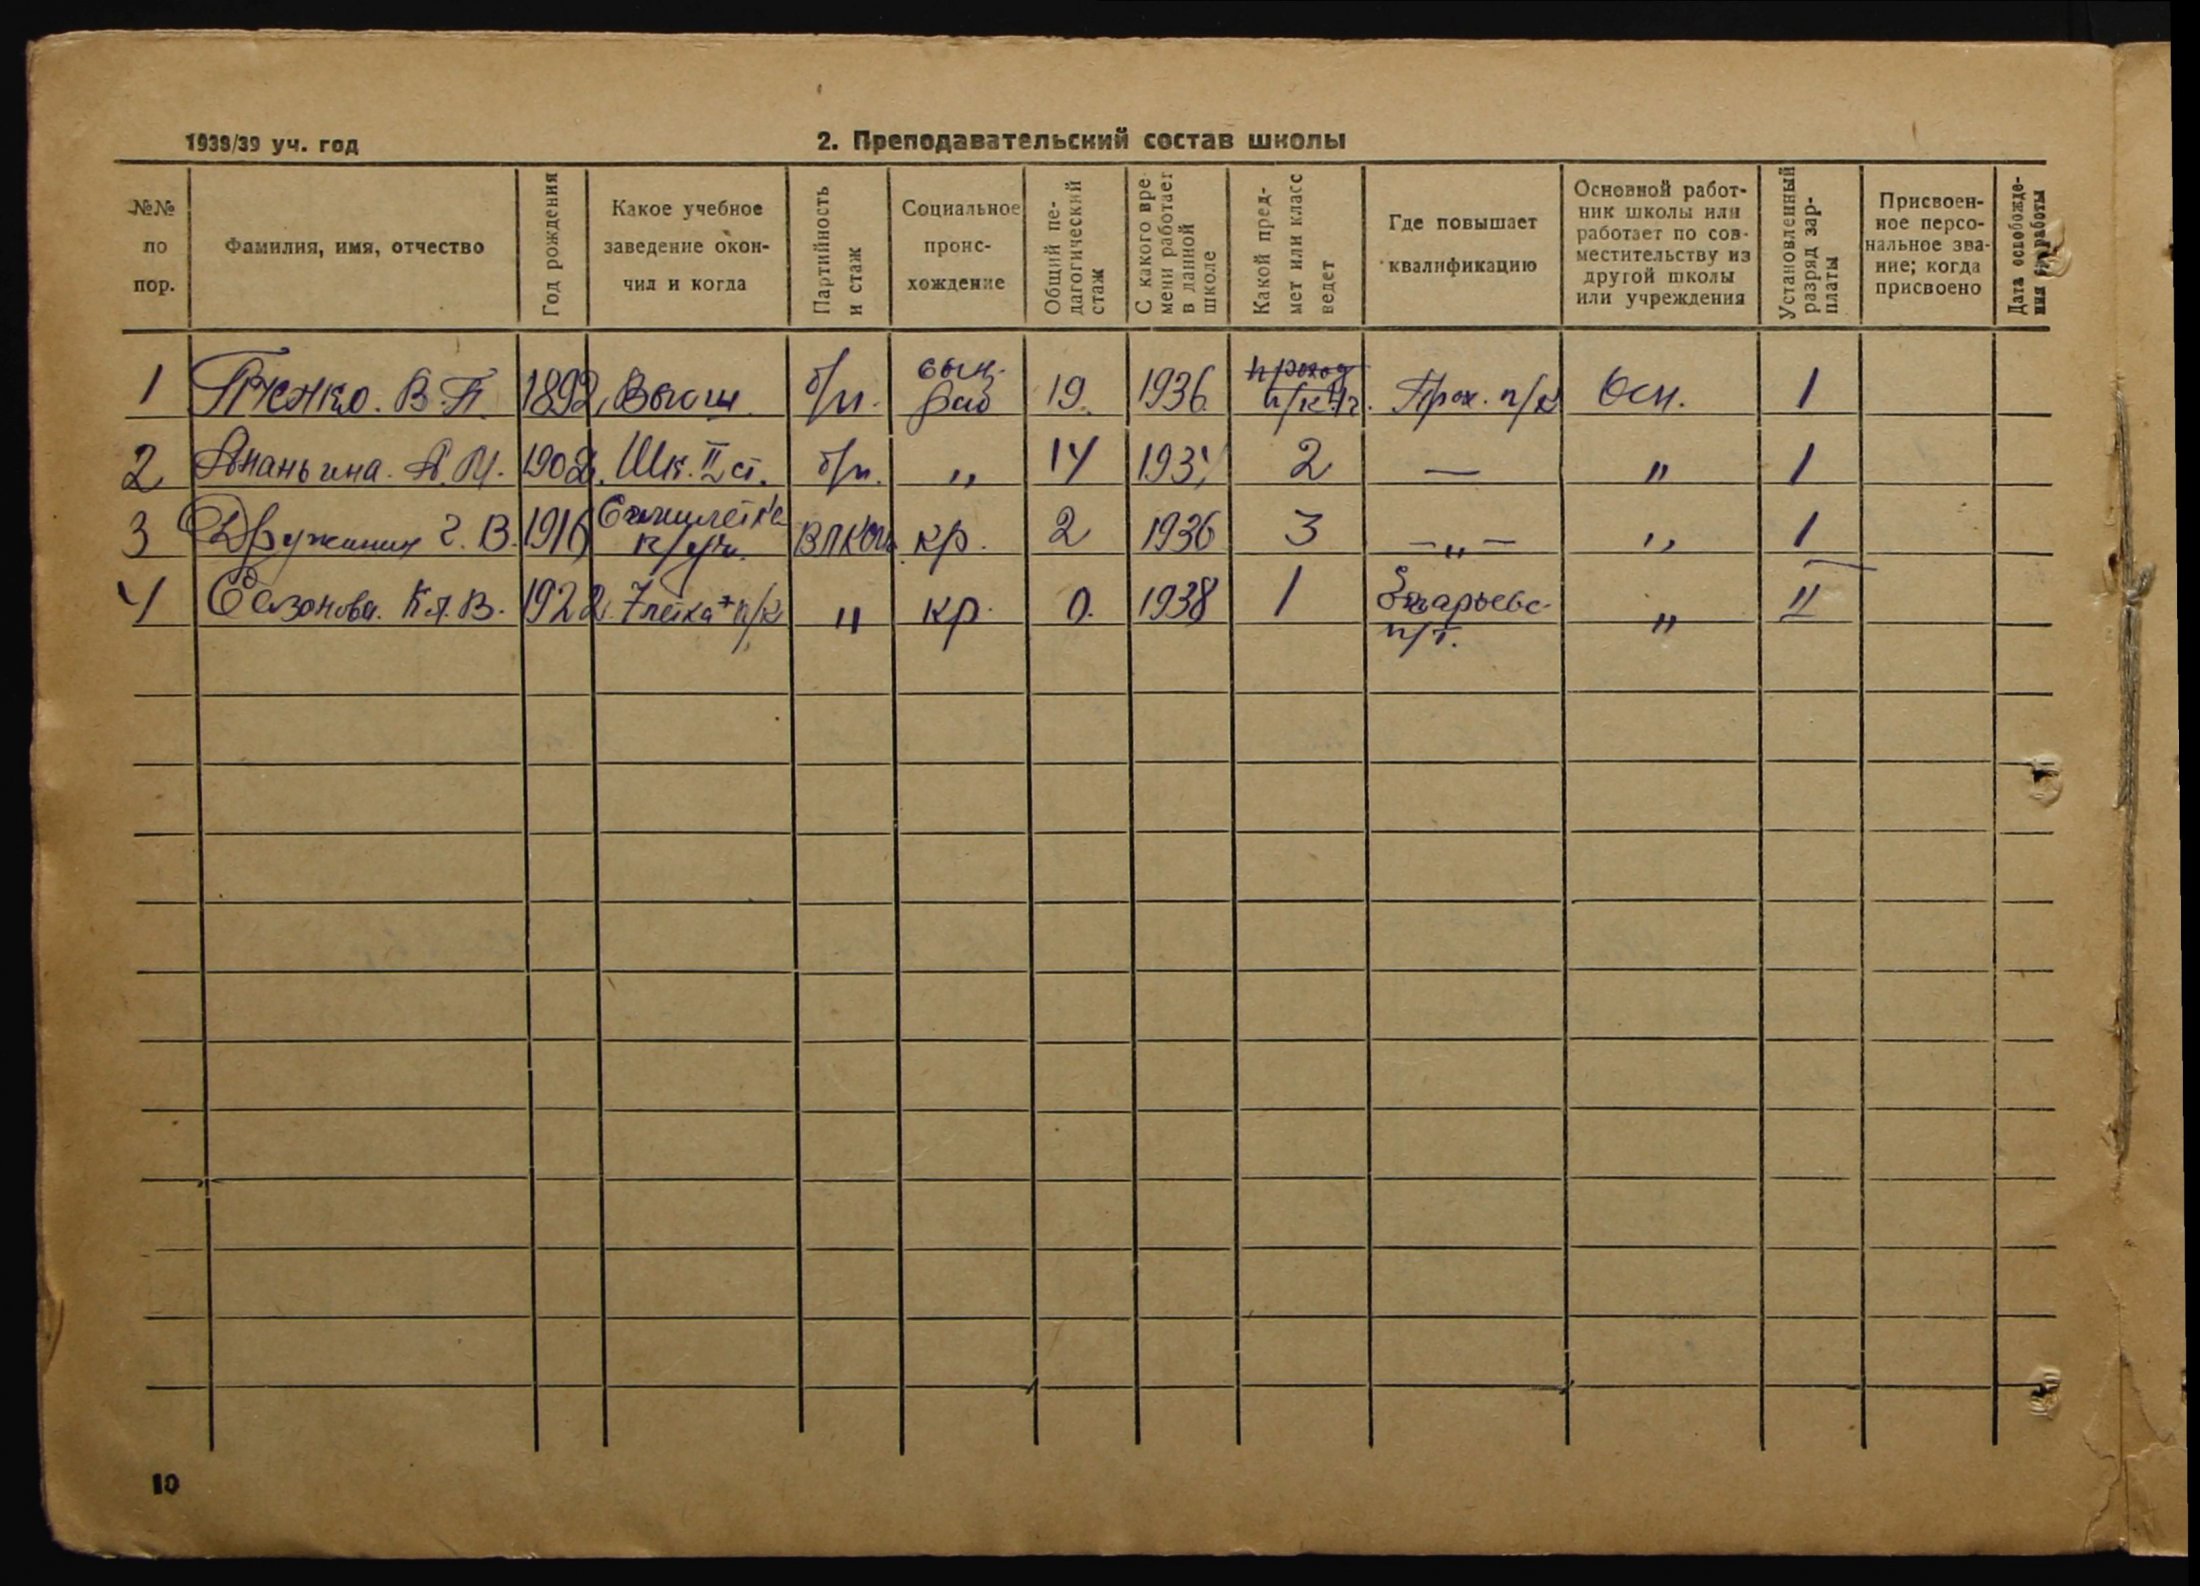 1938/39 уч. год
2. Преподавательский состав школы
№№ по пор.
Фамилия, имя, отчество
Год рождения
Какое учебное заведение окон-чил и когда
Партийность и стаж
Социальное проис-хождение
Общий пе-дагогический стаж
С какого вре-мени работает в данной школе
Какой пред-мет или класс ведет
Где повышает квалификацию
Основной работ-ник школы или работает по сов-местительству из другой школы или учреждения
Установленный разряд зар-платы
Присвоен-ное персо-нальное зва-ние; когда присвоено
Дата освобожде-ния от работы
1 В. П. 1892 б/п. раб 19. 1936 Прох. п/к Осн. 1
2 Ананьина. А. М. 1902. Шк. II ст. б/п. „ 14 1937 2 — „ 1
3 Дружинин Г. В. 1916 Семилетка ВЛКСМ кр. 2 1936 3 — „ — „ 1
4 Сазонова. Кл. В. 1922. 7летка + п/к „ кр. 0. 1938 1 п/т. „ II
10